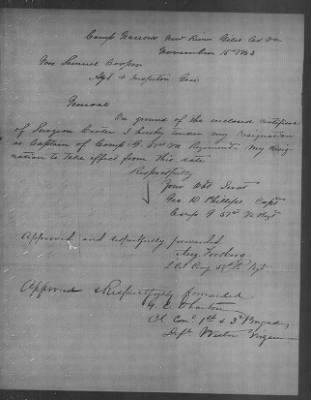 Camp Narrows New River Giles Co Va
November 15th 1863
Gen Samuel Cooper
Agt & Inspector Gen
General
On ground of the enclosed certificate
of Surgeon I hereby tender my resignation
as Captain of Comp G 51st Va Regiment. My resig
nation to take effect from this date
Respectfully
Your Obt Servt
Geo R Phillips Capt
Comp G 51st V Regt
Approved and respectfully forwarded
Aug Forsberg
Lt Col Comg 51st V Regt
Approved & Respectfully forwarded
G. C. Wharton
Col Comg 1st & 3d Brigades
Dept Western Virginia